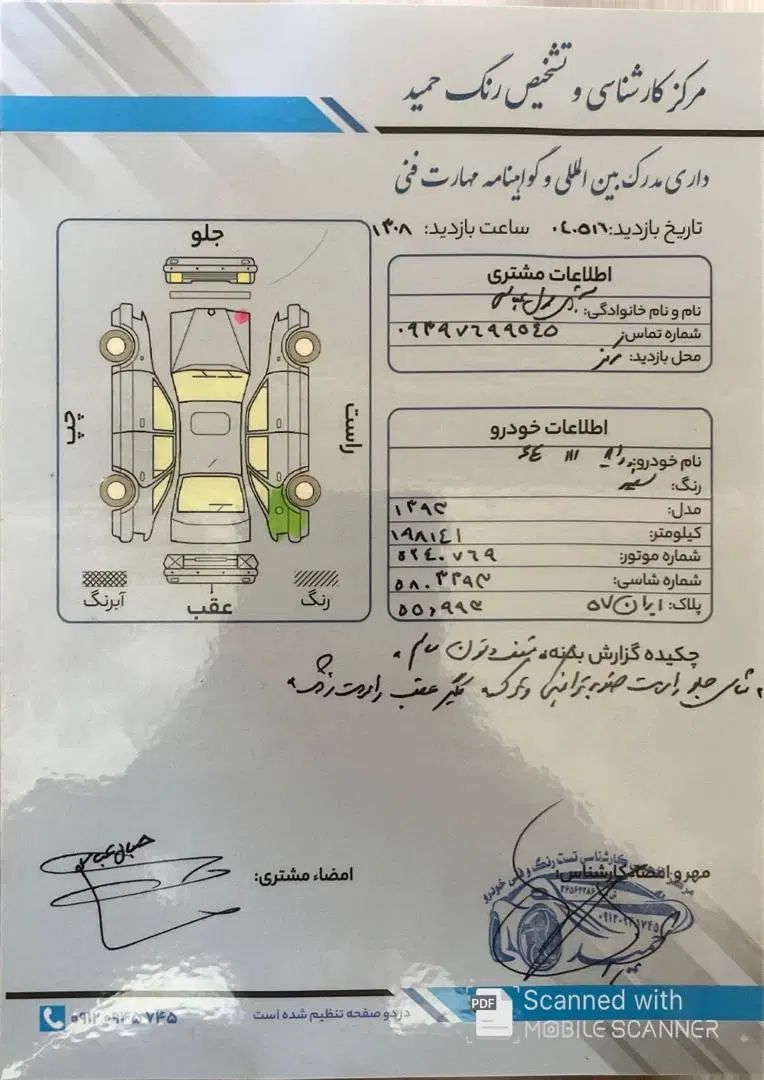 مرکز کارشناسی و تشخیص رنگ حمید
داری مدرک بین المللی و گواهینامه مهارت فنی
تاریخ بازدید: ۰۴۰۵۱۶ ساعت بازدید: ۱۳۰۸
جلو
چپ
راست
عقب
آبرنگ
رنگ
اطلاعات مشتری
نام و نام خانوادگی:
شماره تماس: ۰۹۳۹۷۶۹۹۵۴۵
محل بازدید: مرکز
اطلاعات خودرو
نام خودرو: پراید ۱۱۱
رنگ: سفید
مدل: ۱۳۹۳
کیلومتر: ۱۹۸۱۴۱
شماره موتور: ۵۲۴۰۷۶۹
شماره شاسی: ۵۸۰۳۲۹۳
پلاک: ایران ۵۷ ۵۵و۹۹۳
چکیده گزارش بدنه: سقف و ستون سالم
شاسی جلو راست
گلگیر عقب راست رنگ
امضاء مشتری:
مهر و امضاء کارشناس:
مرکز کارشناسی تست رنگ و فنی خودرو
حمید
در دو صفحه تنظیم شده است
۰۹۱۲ ۰۹۴۵ ۷۴۵
PDF
Scanned with
MOBILE SCANNER